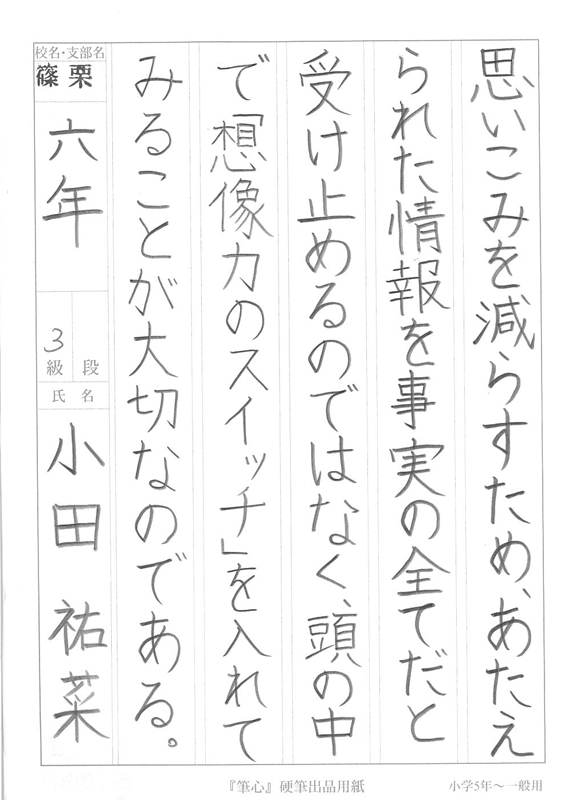 思いこみを減らすため、あたえ
られた情報を事実の全てだと
受け止めるのではなく、頭の中
で「想像力のスイッチ」を入れて
みることが大切なのである。
校名・支部名
篠栗
六年
3
級 段
氏 名
小田 祐菜
『筆心』硬筆出品用紙
小学5年～一般用